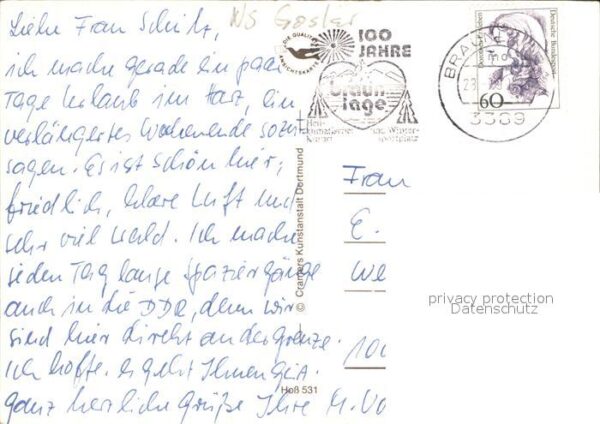 WS Goslar
Liebe Frau Schulz,
ich mache gerade ein paar
Tage Urlaub im Harz, ein
verlängertes Wochenende sozu
sagen. Es ist schön hier,
friedlich, klare Luft und
sehr viel Wald. Ich mache
jeden Tag lange Spaziergänge
auch in die DDR, denn wir
sind hier direkt an der Grenze.
Ich hoffe, es geht Ihnen gut.
Ganz herzliche Grüße Ihre M. Vo
DIE QUALITÄTS
ANSICHTSKARTE
100
JAHRE
braun
lage
Heil-
klimatischer
Kurort
u. Winter-
sportplatz
BRAUN
3389
Deutsche Bundespost
60
© Cramers Kunstanstalt Dortmund
Hoß 531
Frau
E.
We
100
privacy protection
Datenschutz